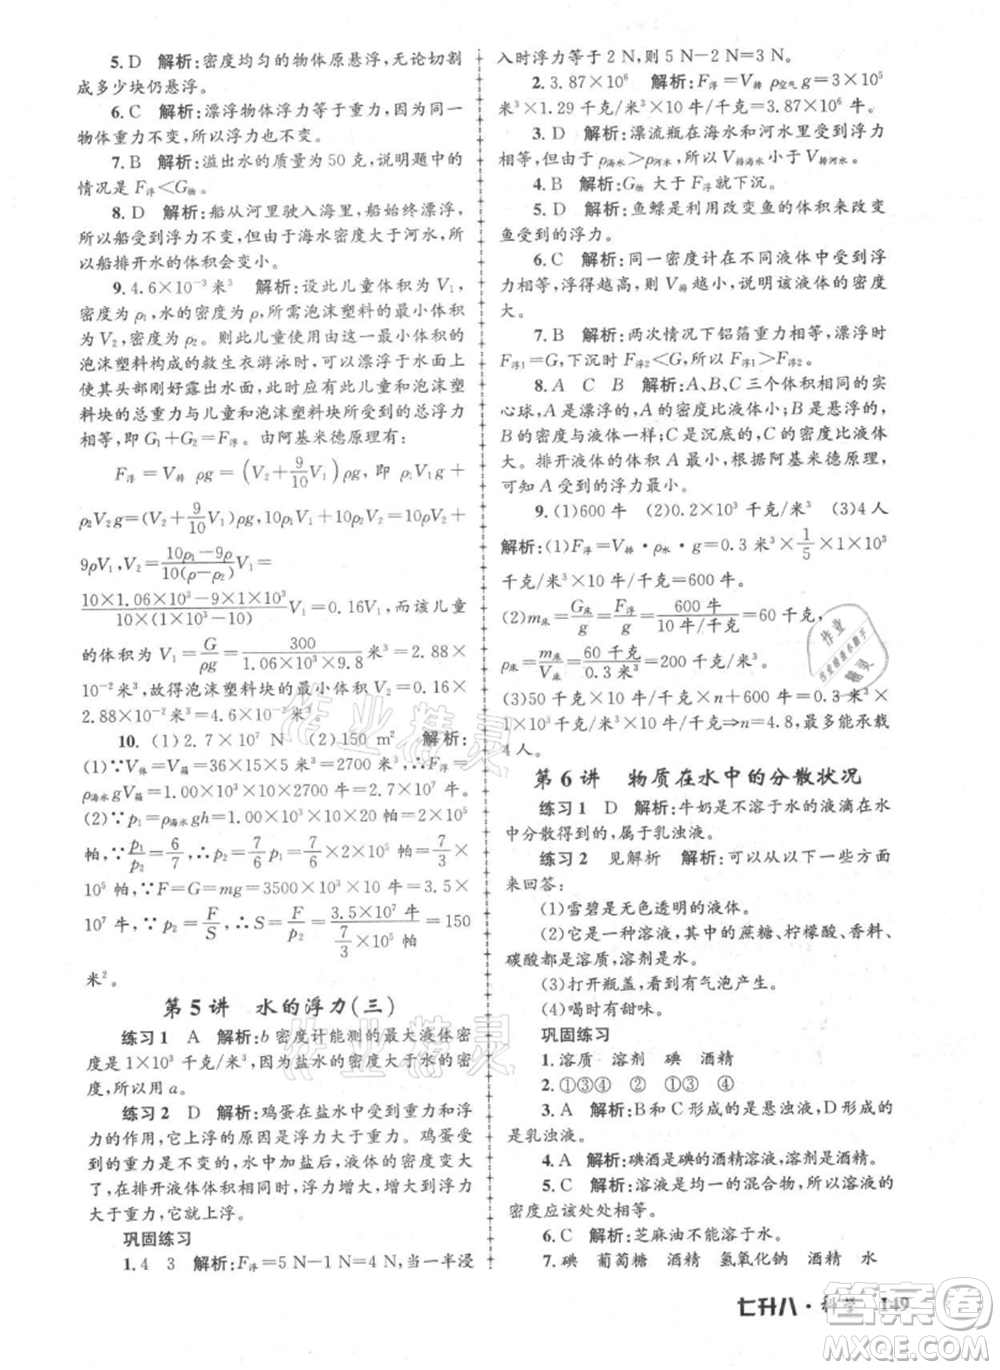 5. D 解析:密度均匀的物体原悬浮,无论切割
成多少块仍悬浮。
6. C 解析:漂浮物体浮力等于重力,因为同一
物体重力不变,所以浮力也不变。
7. B 解析:溢出水的质量为 50 克,说明题中
的情况是 F浮<G物。
8. D 解析:船从河里驶入海里,船始终漂浮,
所以船受到浮力不变,但由于海水密度大于河水,
所以船排开水的体积会变小。
9. 4.6×10⁻³米³ 解析:设此儿童体积 V₁,
密度为 ρ₁,水的密度为 ρ,所需泡沫塑料的体积为
V₂,密度为 ρ₂。则此儿童使用这一最小体积的
泡沫塑料构成的救生衣游泳时,可以漂浮于水面,
使其头部刚好露出水面,此时应有儿童和泡沫塑
料块的总重力与儿童和泡沫塑料块所受的总浮力
相等,即 G₁+G₂=F浮。由阿基米德原理有:
F浮=V排 ρg=(V₂+9/10 V₁)ρg,即 ρ₁V₁g+
ρ₂V₂g=(V₂+9/10 V₁)ρg,10ρ₁V₁+10ρ₂V₂=10ρV₂+
9ρV₁,V₂=10ρ₁-9ρ/10(ρ-ρ₂) V₁=
10×1.06×10³-9×1×10³/10×(1×10³-0.1×10³) V₁=0.16V₁,而该儿童
的体积为 V₁=G/ρg=300/1.06×10³×9.8 米³=2.88×
10⁻² 米³,故得泡沫塑料块的体积为 V₂=0.16×
2.88×10⁻² 米³=4.6×10⁻³ 米³。
10. (1)2.7×10⁷ N (2)150 m² 解析:
(1)∵V体=V箱=36×15×5=2700 米³,F浮=
ρ海水gV箱=1.00×10³×10×2700=2.7×10⁷ 牛。
(2)∵p₁=ρ海水gh=1.00×10³×10×200=2×10⁶
帕,∵p₁/p₂=6/7,∴p₂=7/6p₁=7/6×2×10⁶=7/3×
10⁶ 帕,∵F=G=mg=3500×10³×10=3.5×
10⁷ 牛,∵p₂=F/S,∴S=F/p₂=3.5×10⁷牛/7/3×10⁶帕=150
米²。
第 5 讲 水的浮力(三)
练习 1 A 解析:b 密度计能测的最大液体密
度是 1×10³ 千克/米³,因为盐水的密度大于水的密
度,所以用 a。
练习 2 D 解析:鸡蛋在盐水中受到重力和浮
力的作用,它上浮的原因是浮力大于重力。鸡蛋受
到的重力是不变的,水中加盐后,液体的密度变大,
在排开液体体积相同时,浮力增大,增大到浮力
大于重力时,它就上浮。
巩固练习
1. 4 3 解析:F浮=5 N-1 N=4 N,当一半浸
入时浮力等于 2 N,则 5 N-2 N=3 N。
2. 3.87×10⁶ 解析:F浮=V排ρ空气g=3×10⁵
米³×1.29 千克/米³×10 牛/千克=3.87×10⁶ 牛。
3. D 解析:漂流瓶在海水和河水中所受浮力
相等,但由于 ρ海水>ρ河水,所以 V排海水小于 V排河水。
4. B 解析:G物大于 F浮就下沉。
5. D 解析:鱼鳔是利用改变鱼的体积来改变
鱼受到的浮力。
6. C 解析:同一密度计在不同液体中所受到
的浮力相等,浮得越高,V排越小,说明该液体的密度
越大。
7. B 解析:两次情况下铝箔重力相等,漂浮时
F浮1=G,下沉时 F浮2<G,所以 F浮1>F浮2。
8. A C B 解析:A、B、C 三个体积相同的实
心球,A 是漂浮的,A 的密度比液体小;B 是悬浮的,
B 的密度与液体一样;C 是沉底的,C 的密度比液体
大。排开液体的体积 A 最小,根据阿基米德原理,
可知 A 受到的浮力最小。
9. (1)600 牛 (2)0.2×10³ 千克/米³ (3)4 人
解析:(1)F浮=V排·ρ水·g=0.3 米³×1/5×1×10³
千克/米³×10 牛/千克=600 牛
(2)m床=G床/g=F浮/g=600 牛/10 牛/千克=60 千克,
ρ床=m床/V床=60 千克/0.3 米³=0.2×10³ 千克/米³
(3)50 千克×10 牛/千克×n+600 牛=0.3 米³×
1×10³ 千克/米³×10 牛/千克⇒n=4.8,最多能承载
4 人。
第 6 讲 物质在水中的分散状况
练习 1 D 解析:牛奶是不溶于水的液滴在水
中分散得到的,属于乳浊液。
练习 2 见解析 解析:可以从以下一些方面
来回答:
(1)雪碧是无色透明的液体。
(2)它是一种溶液,溶液中的蔗糖、柠檬酸、香料、
碳酸都是溶质,溶剂是水。
(3)打开瓶盖时,可以看到有气泡产生。
(4)喝时有甜味。
巩固练习
1. 溶质 溶剂 碘 酒精
2. ①③④ ② ①③④
3. A 解析:B 和 C 形成的是悬浊液,D 形成的
是乳浊液。
4. A 解析:碘酒是碘的酒精溶液,溶剂是酒精。
5. C 解析:溶液是均一的混合物,所以溶液的
密度应该处处相等。
6. C 解析:芝麻油不能溶于水。
7. 碘 葡萄糖 酒精 氢氧化钠 酒精 水
七升八·科学 149
作业精灵
作业精灵
作业
作业检查小助手
精灵
答案圈
MXQE.COM